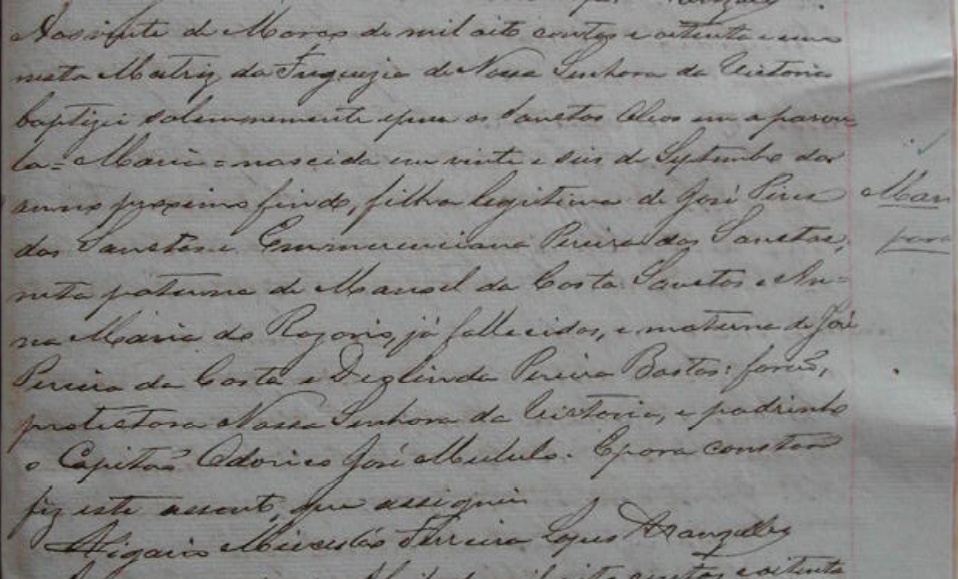 Aos vinte de Março de mil oito centos e oitenta e um
nesta Matriz da Freguezia de Nossa Senhora da Victoria
baptizei solemnemente e puz os Sanctos Oleos em a parvu
la = Maria = nascida em vinte e seis de Septembro do
anno proximo findo, filha legitima de José Pires
dos Sanctos e Emmerenciana Pereira dos Sanctos,
neta paterna de Manoel da Costa Sanctos e An=
na Maria do Rozario, já fallecidos, e materna de José
Pereira da Costa e Deolinda Pereira Bastos: forão,
protectora Nossa Senhora da Victoria, e padrinho
o Capitão Odorico José Mululo. E para constar
fiz este assento, que assignei
Vigario Miecesláo Ferreira Lopes Wanzeller